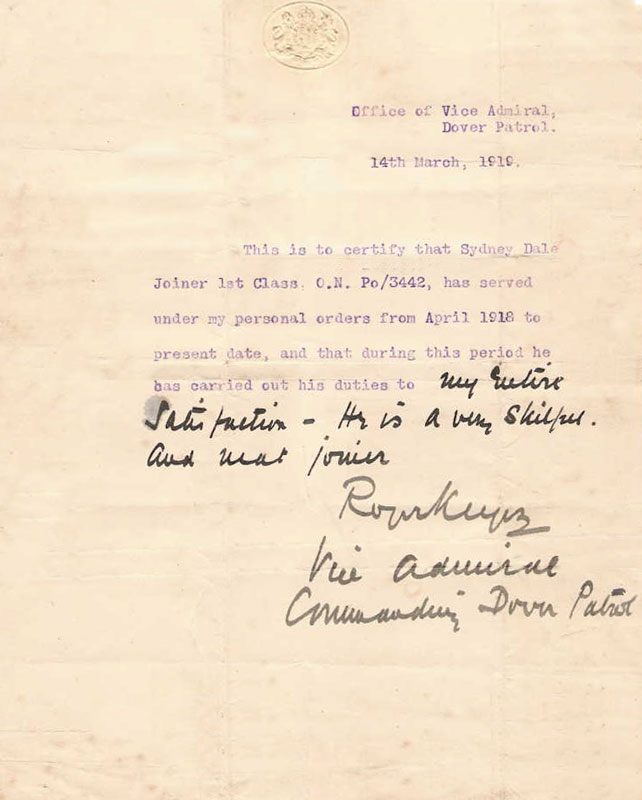 Office of Vice Admiral,
Dover Patrol.
14th March, 1919.
This is to certify that Sydney Dale
Joiner 1st Class. O.N. Po/3442, has served
under my personal orders from April 1918 to
present date, and that during this period he
has carried out his duties to my Entire
Satisfaction - He is a very Skilful.
And neat joiner
Roger Keyes
Vice Admiral
Commanding Dover Patrol